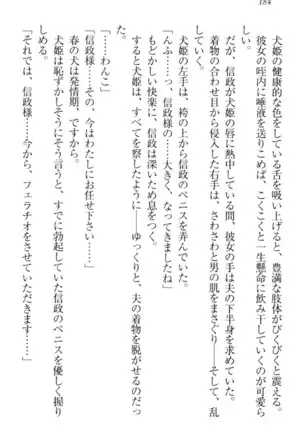 184
犬姫の健康的な色をしている舌を吸いあげると、豊満な肢体がびくびくと震える。
彼女の咥内に唾液を送りこめば、こくこくと一生懸命に飲み干していくのが可愛ら
しくていく。
だが、信政が犬姫の唇に熱中している間、彼女の手は夫の下半身を求めていた。
着物の合わせ目から侵入した右手は、さわさわと男の肌をまさぐり――そして、乱
犬姫の左手は、袴の上から信政のペニスを弄んでいた。
「んふっ……っ、信政様の……大きく、なってきましたね」
もどかしい快楽に、信政は深いため息をつく。
すると犬姫は、すべてを察したように――ゆっくりと、夫の着物を脱がせるのだっ
た。
「……わんこ」
「信政様……その、今はわたしにお任せ下さい……」
春の犬は発情期、ですから。
犬姫は恥ずかしそうにそう言うと、すでに勃起していた信政のペニスを優しく握り
しめる。
「それでは、信政様……今から、フェラチオをさせていた
だきます……」